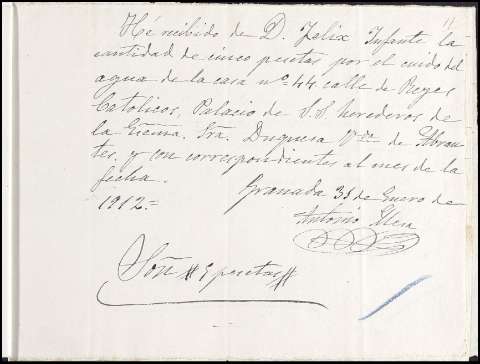 11
He recibido de D. Felix Infante la
cantidad de cinco pesetas por el cuido del
agua de la casa nº 44 calle de Reyes
Catolicos, Palacio de S.S herederos de
la Excma. Sra. Duquesa Vda de Abran-
tes. y con correspondientes al mes de la
fecha. Granada 31 de Enero de
1912.=
Antonio
Son # 5 pesetas #